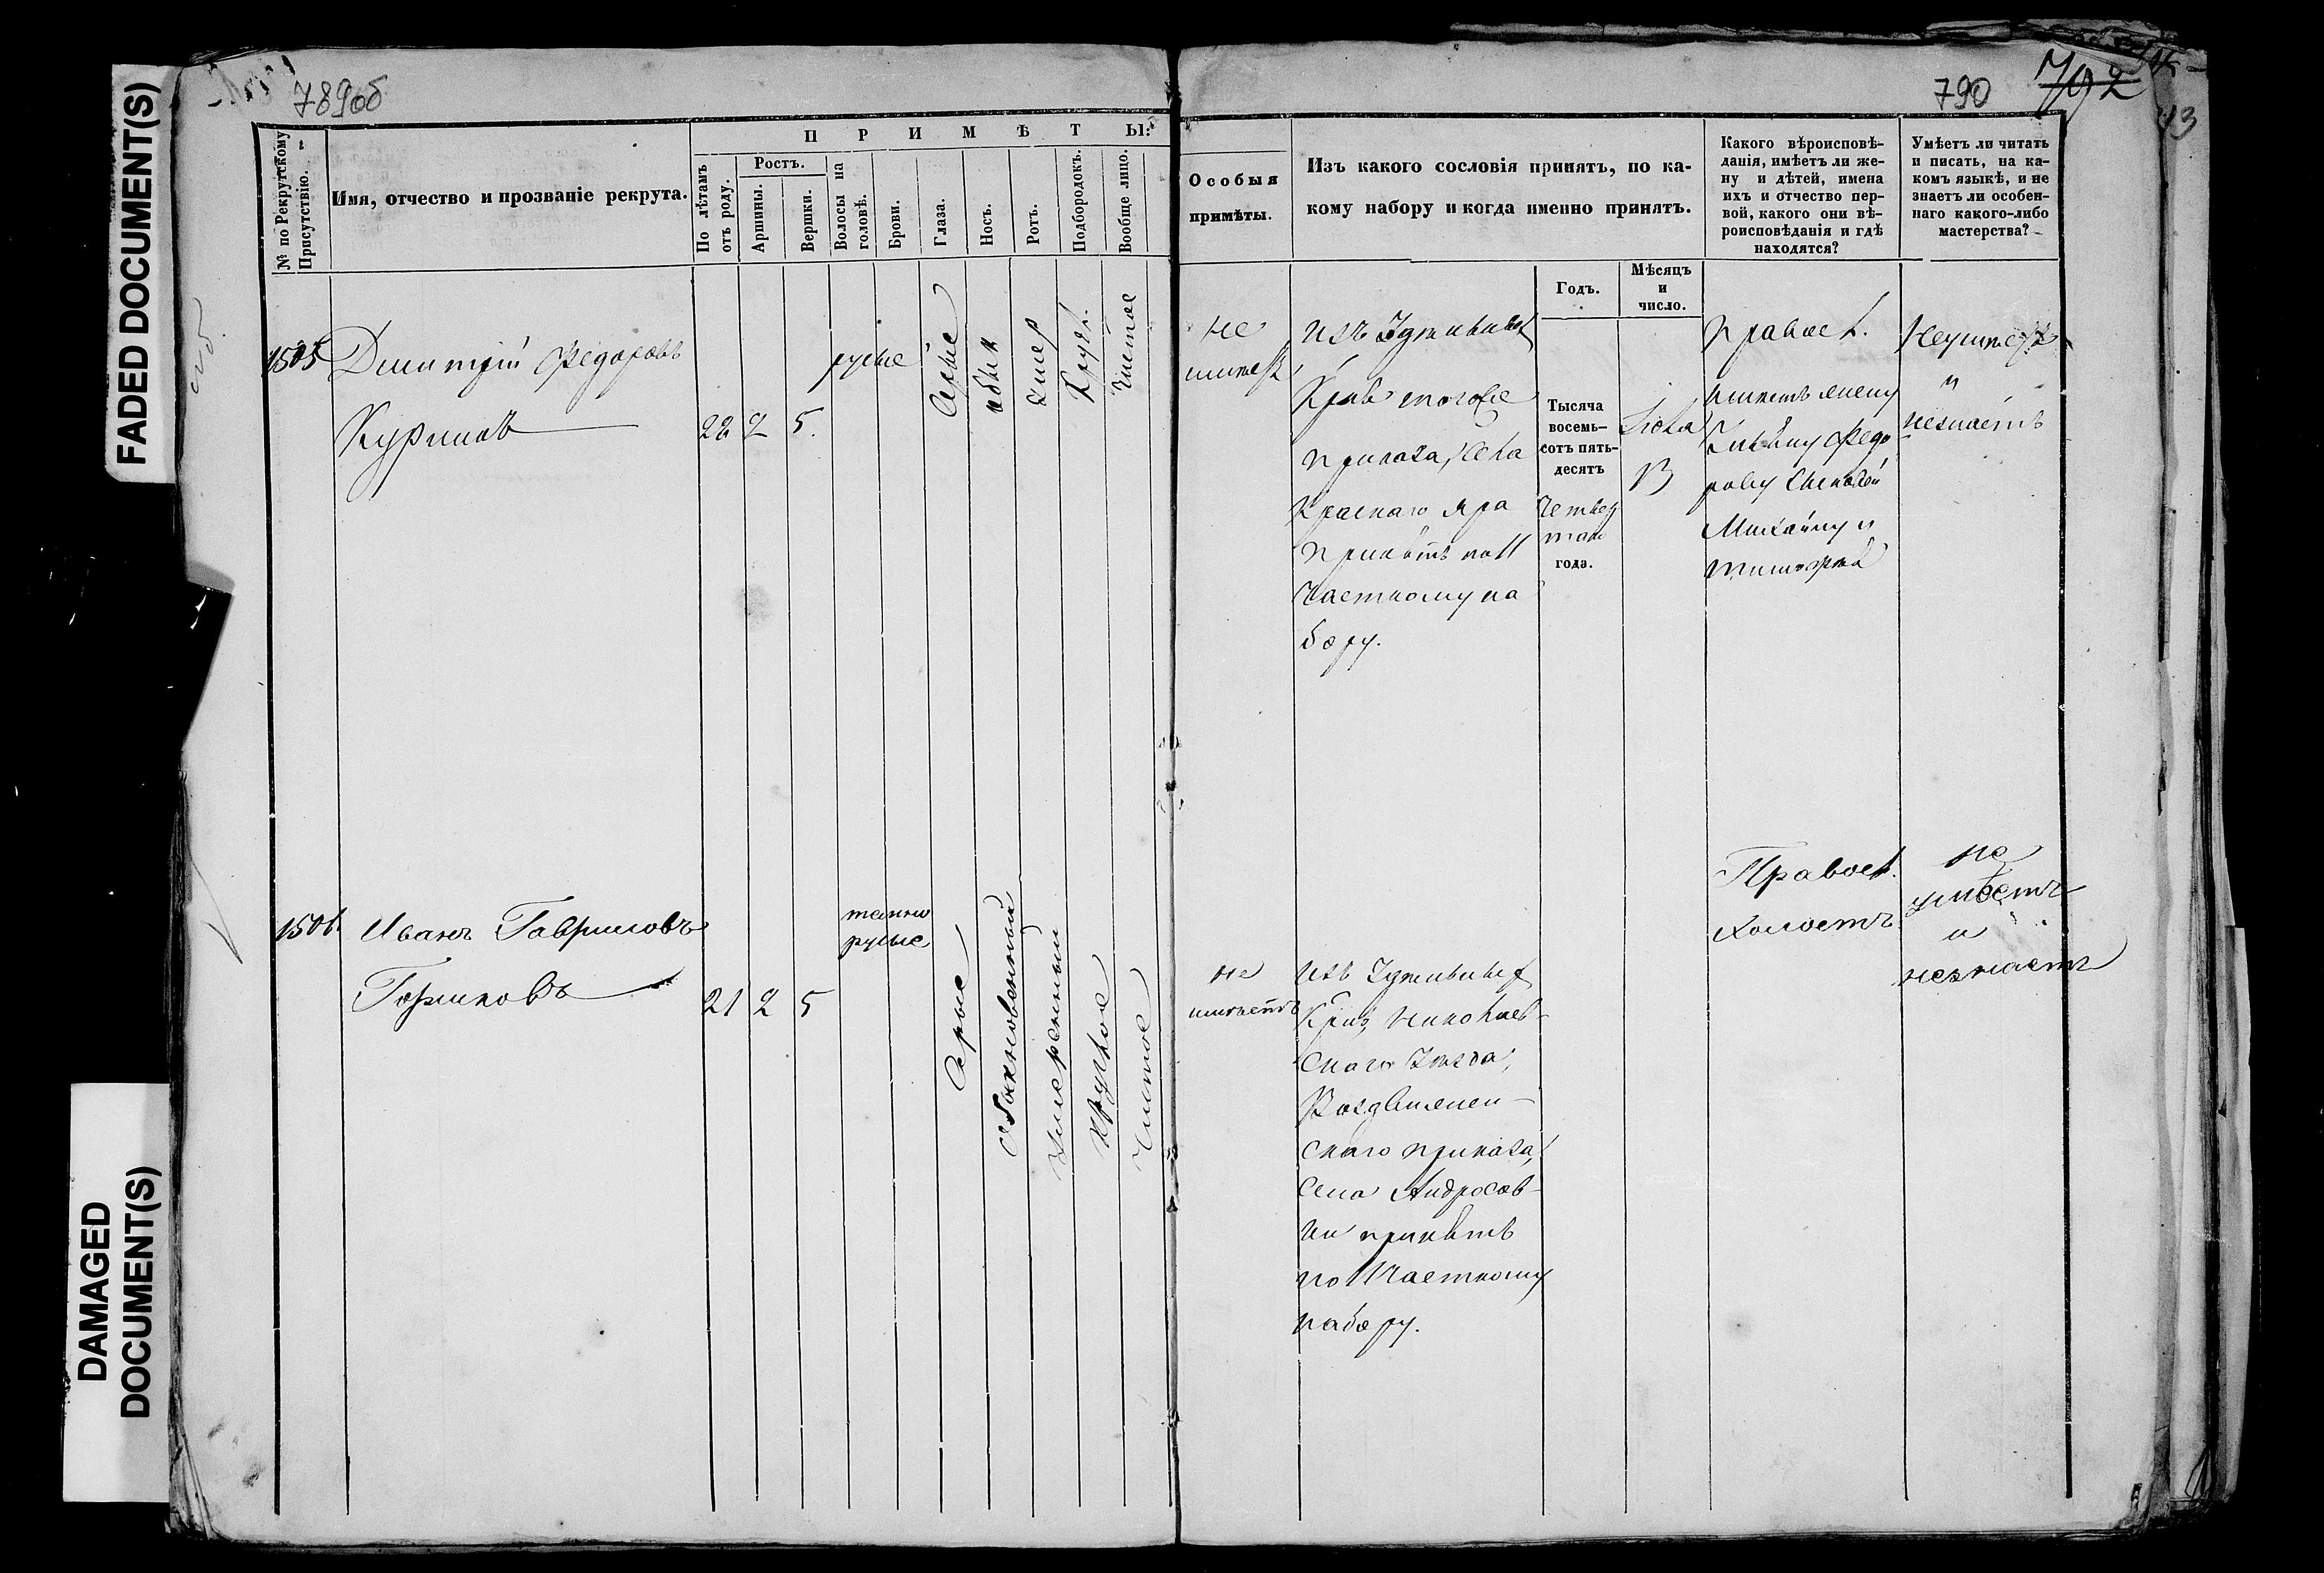 FADED DOCUMENT(S)
DAMAGED
DOCUMENT(S)
789об
790
792
№ по Рекрутскому
Присутствію.
Имя, отчество и прозваніе рекрута.
ПРИМѢТЫ:
По лѣтамъ
отъ роду.
Ростъ.
Аршины.
Вершки.
Волосы на
головѣ.
Брови.
Глаза.
Носъ.
Ротъ.
Подбородокъ.
Вообще лицо.
Особыя
примѣты.
Изъ какого сословія принятъ, по ка-
кому набору и когда именно принятъ.
Годъ.
Мѣсяцъ
и
число.
Какого вѣроисповѣ-
данія, имѣетъ ли же-
ну и дѣтей, имена
ихъ и отчество пер-
вой, какого они вѣ-
роисповѣданія и гдѣ
находятся?
Умѣетъ ли читать
и писать, на ка-
комъ языкѣ, и не
знаетъ ли особен-
наго какого-либо
мастерства?
1505
Дмитрій Федоровъ
22 2 5.
русые
Сѣрые
обык
умер
Кругл.
Чистое
не
изъ Удѣльныхъ
Крест. тогоже
приказа, Села
Краснаго Яра
принятъ по 11
Частному на
бору.
Тысяча
восемь-
сотъ пять-
десятъ
Четвер
таго
года.
Іюля
Правос.
имѣетъ жену
Федо
рову Сыновей
Михайлу и
и
незнаетъ
1506
Иванъ Гавриловъ
Горшковъ
21 2 5
темно
русые
Сѣрые
обыкновенный
умѣренный
круглое
Чистое
не
имѣетъ
Изъ Удѣльных
Крес. Николаев-
скаго Уѣзда,
Воздвижен-
скаго приказа,
Села Андросов-
ки принятъ
по 11 Частному
набору.
Правос.
холостъ
не
умѣетъ
и
незнаетъ